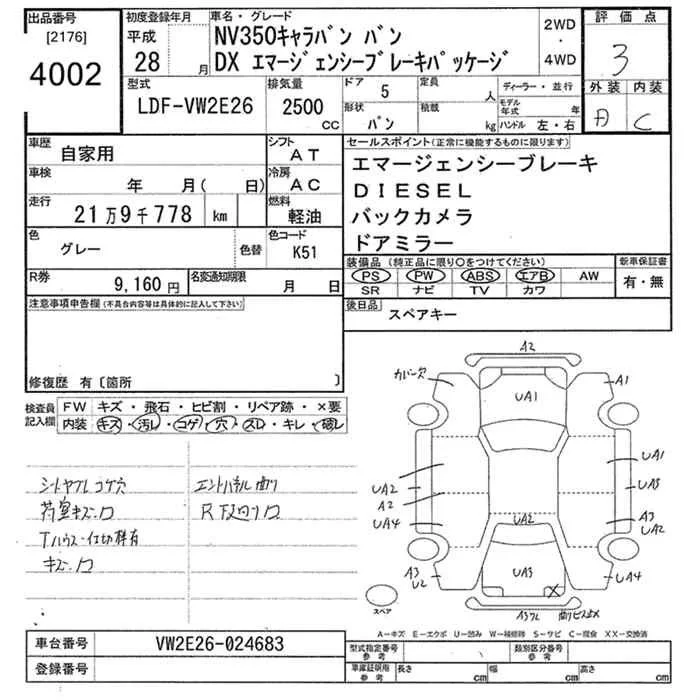 出品番号
[2176]
4002
初度登録年月
平成
28 月
車名・グレード
NV350キャラバン バン
DX エマージェンシーブレーキパッケージ
2WD
・
4WD
評価点
3
外装 内装
A C
型式
LDF-VW2E26
排気量
2500
CC
ドア 5
定員 人
ディーラー・並行
形状
バン
積載 kg
モデル年式 年
ハンドル 左・右
車歴
自家用
シフト
AT
車検
年 月( 日)
冷房
AC
走行
21万9千778 km
燃料
軽油
色
グレー
色替
色コード
K51
R券
9,160円
名変通知期限
月 日
セールスポイント(正常に機能するものに限ります)
エマージェンシーブレーキ
DIESEL
バックカメラ
ドアミラー
装備品(純正品に限り○をつけてください)
新車保証書
PS PW ABS エアB AW
SR ナビ TV カワ
有・無
後日品
スペアキー
注意事項申告欄(不具合内容等は具体的に記入して下さい)
修復歴 有〔箇所 〕
検査員記入欄
FW キズ・飛石・ヒビ割・リペア跡・×要
内装 キズ・汚レ・コゲ・穴・スレ・キレ・破レ
荷室キズ・ロ
キズ・ロ
A2
カバー欠
A1
UA1
UA1
UA2
A2
UA4
UA2
A3
UA2
A3
U2
UA3
UA4
スペア
A-キズ E-エクボ U-凹み W-補修跡 S-サビ C-腐食 XX-交換済
車台番号
VW2E26-024683
登録番号
型式指定番号
参考
類別区分番号
参考
車庫証明用
参考
長さ cm
幅 cm
高さ cm